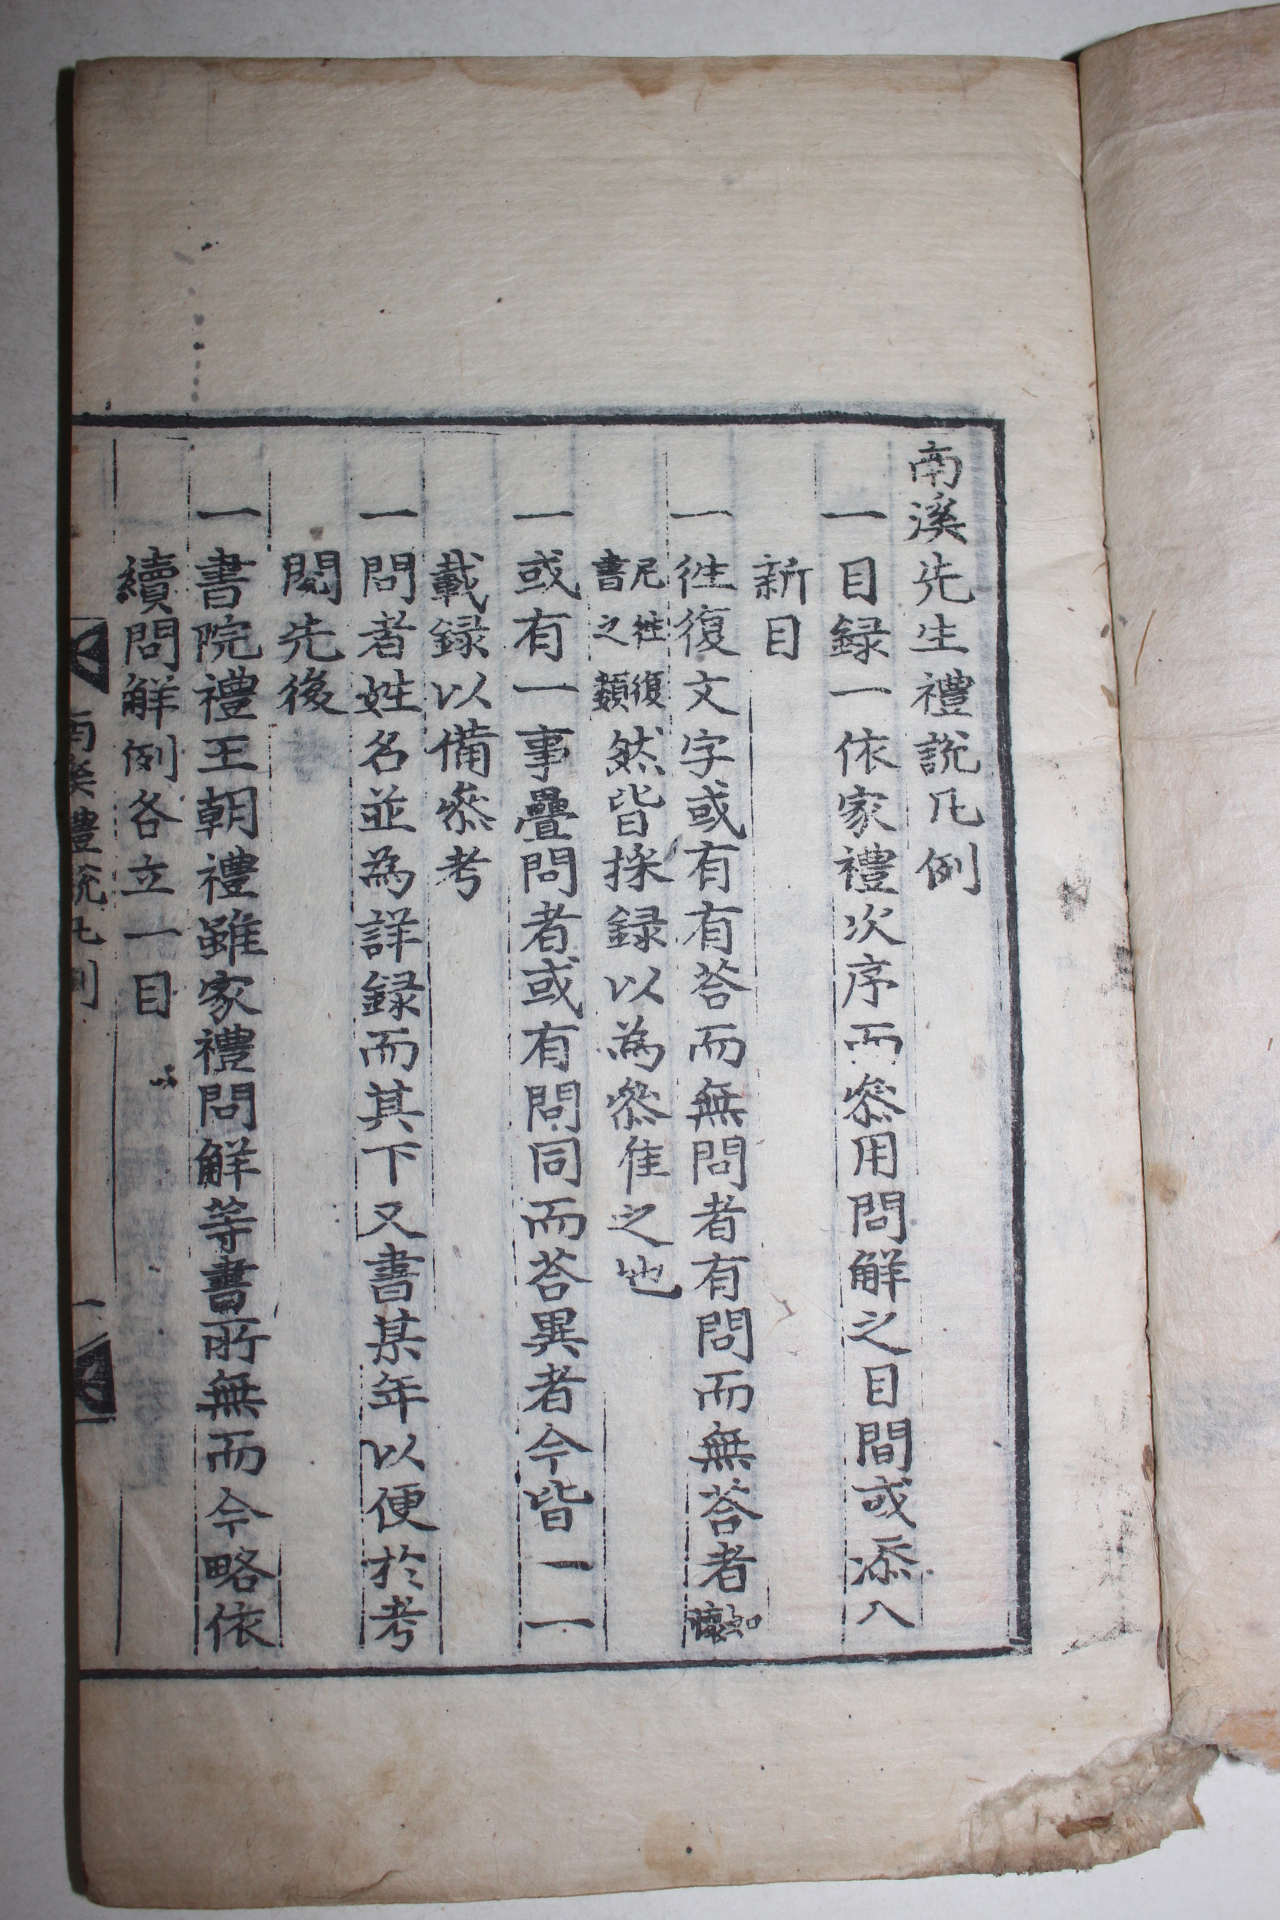 南溪先生禮說凡例
一目録一依家禮次序而叅用問觧之目間或添入
新目
一徃復文字或有有荅而無問者有問而無荅者如與懷
尼徃復
書之類然皆採録以為叅隹之也
一或有一事疊問者或有問同而荅異者今皆一一
載録以備叅考
一問者姓名並為詳録而其下又書某年以便於考
閱先後
一書院禮王朝禮雖家禮問觧等書所無而今略依
續問觧例各立一目
南溪禮說凡例
一